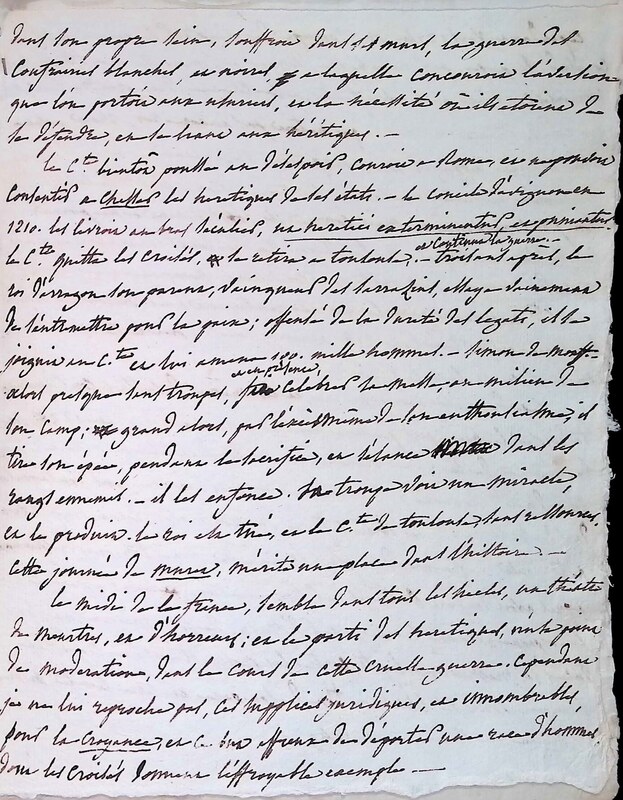 dans son propre sein, souffroit dans ses murs, la guerre des
Confrairies blanches, et noires, a laquelle concouroit l'aversion
que l'on portoit aux usuriers, et la nécessité où ils etoient de
se défendre, en se liant aux hérétiques. —
le C.te bientôt poussé au désespoir, couroit a Rome, et ne pouvoit
Consentir a chasser les heretiques de ses états. — le concile d'avignon en
1210. les livroit au bras séculier, ut heretici exterminentur, et puniantur.
le C.te quitte les Croisés, se retire a toulouse, et Continua la guerre. — trois ans après, le
roi d'arragon son parent, vainqueur des sarrazins, essaye vainement
de s'entremettre pour la paix; offensé de la dureté des legats, il se
joignit au C.te et lui amena 100. mille hommes. — simon de montf.
alors presque sans troupes, et en présence, fit célébrer la messe, au milieu de
son camp; grand alors, par l'excès même de son enthousiasme, il
tire son épée, pendant le sacrifice, et s'élance dans les
rangs ennemis. — il les enfonce. sa troupe voit un miracle,
et le produit. le roi est tué, et le C.te de toulouse, sans ressources.
Cette journée de muret, mérite une place dans l'histoire. —
le midi de la france, semble dans tous les siecles, un théâtre
de meurtres, et d'horreurs; et le parti des heretiques, n'eut point
de moderation, dans le cours de cette cruelle guerre. Cependant
je ne lui reproche pas, ces supplices juridiques, et innombrables,
pour la Croyance, et affreux de deporter une race d'hommes
dont les Croisés donnent l'effroyable exemple —